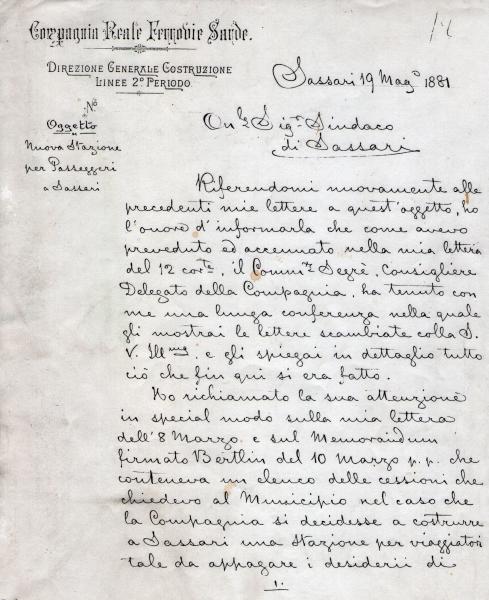 Compagnia Reale Ferrovie Sarde.
14
Direzione Generale Costruzione
Linee 2º Periodo
Sassari 19 Magº 1881
Nº
Oggetto
Nuova Stazione
per Passeggeri
a Sassari
On.le Sigr Sindaco
di Sassari
Riferendomi nuovamente alle
precedenti mie lettere a quest'oggetto, ho
l'onore d'informarla che come avevo
preveduto ed accennato nella mia lettera
del 12 corte, il Commre Segré, Consigliere
Delegato della Compagnia, ha tenuto con
me una lunga conferenza nella quale
gli mostrai le lettere scambiate colla S.
V. Illma e gli spiegai in dettaglio tutto
ciò che fin qui si era fatto.
Ho richiamato la sua attenzione
in special modo sulla mia lettera
dell'8 Marzo e sul Memorandum
firmato Bertlin del 10 Marzo p.p. che
conteneva un elenco delle cessioni che
chiedevo al Municipio nel caso che
la Compagnia si decidesse a costrurre
a Sassari una stazione per viaggiatori
tale da appagare i desiderii di
1.